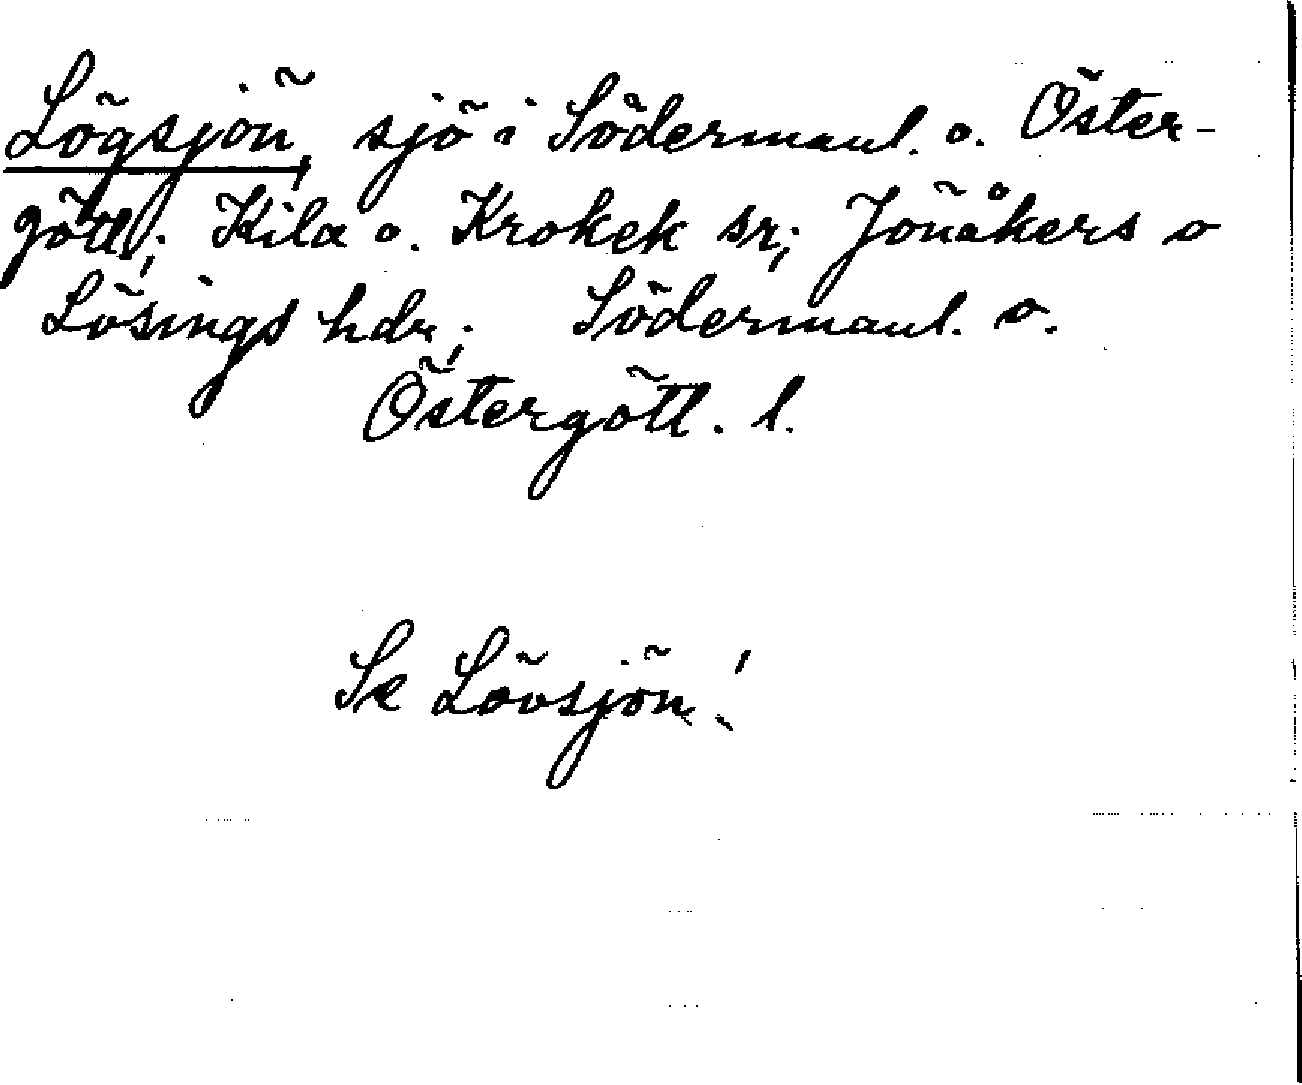 Lögsjön, sjö i Södermanl. o. Öster-
götl.; Kila o. Krokek sr; Jönåkers o
Lösings hdr; Södermanl. o.
Östergötl. l.
Se Lövsjön!